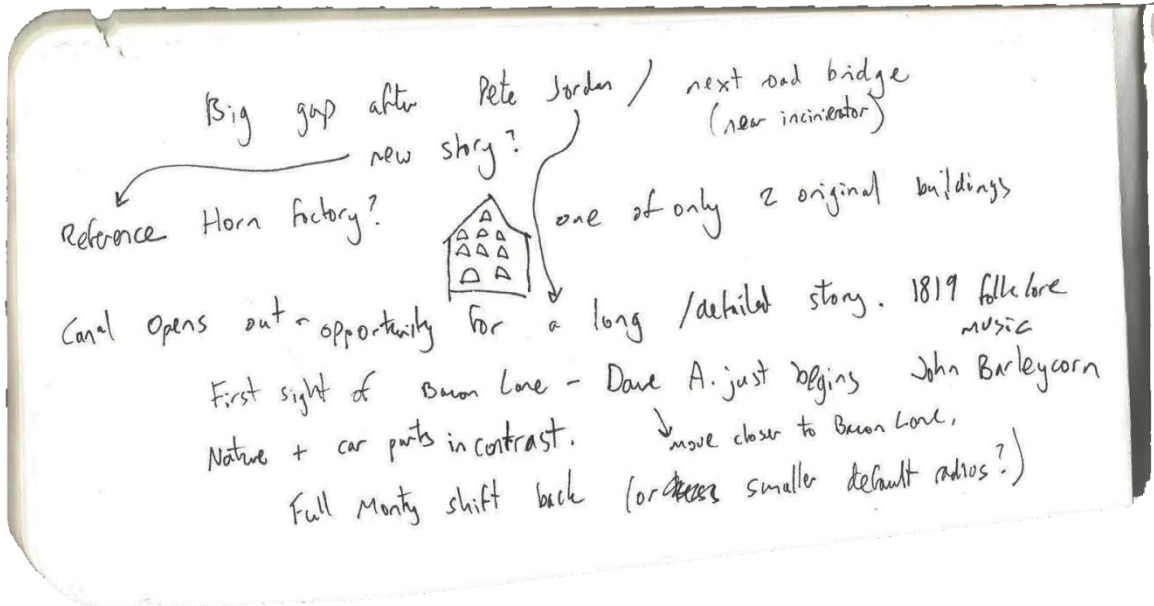 Big gap after Pete Jordan / next road bridge
(near incinierator)
new story?
Reference Horn factory?
one of only 2 original buildings
Canal Opens out - opportunity for a long / detailed story. 1819 folklore
music
First sight of Bacon Lane - Dave A. just begins John Barleycorn
Nature + car parts in contrast.
move closer to Bacon Lane.
Full Monty shift back (or smaller default radius?)